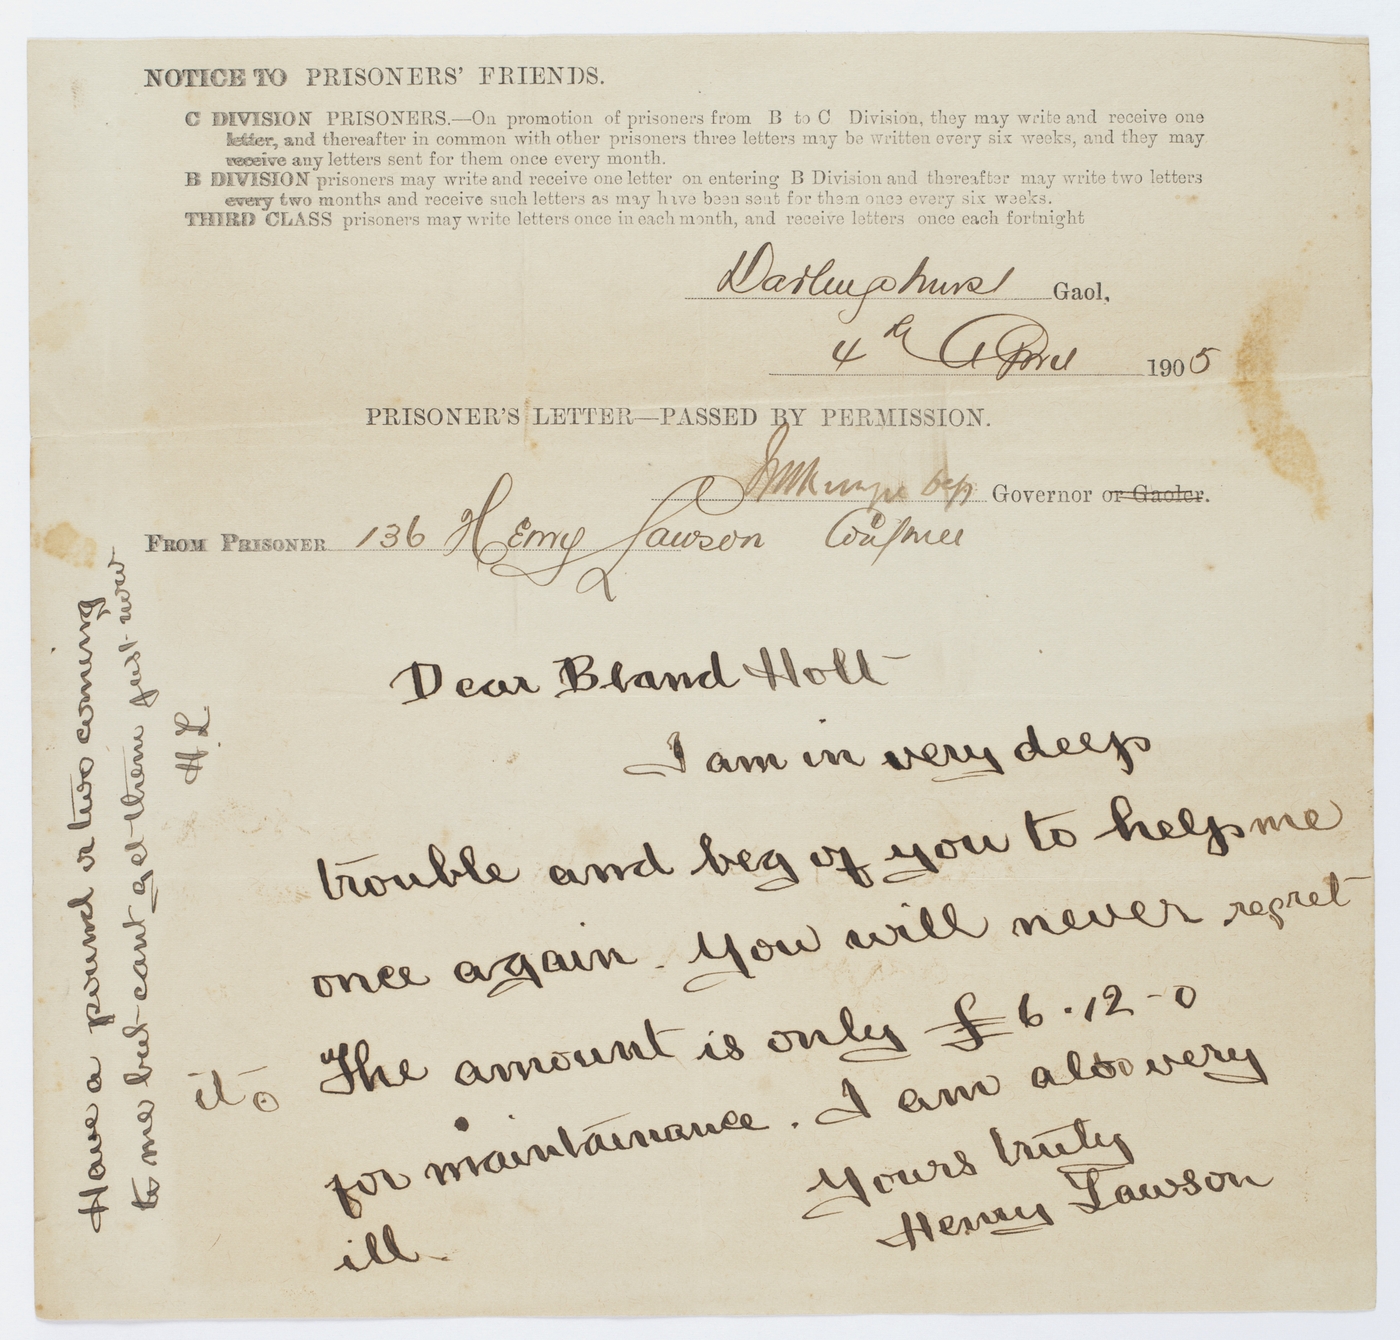 NOTICE TO PRISONERS' FRIENDS.
C DIVISION PRISONERS.—On promotion of prisoners from B to C Division, they may write and receive one
letter, and thereafter in common with other prisoners three letters may be written every six weeks, and they may
receive any letters sent for them once every month.
B DIVISION prisoners may write and receive one letter on entering B Division and thereafter may write two letters
every two months and receive such letters as may have been sent for them once every six weeks.
THIRD CLASS prisoners may write letters once in each month, and receive letters once each fortnight
Darlinghurst Gaol,
4th April 1905
PRISONER'S LETTER—PASSED BY PERMISSION.
Governor or Gaoler.
FROM PRISONER 136 Henry Lawson Confinee
Dear Bland Holt
I am in very deep
trouble and beg of you to help me
once again. You will never regret
it
The amount is only £6.12-0
for maintainance. I am also very
ill.
Yours truly
Henry Lawson
Have a pound or two coming
to me but cant get them just now
H.L.